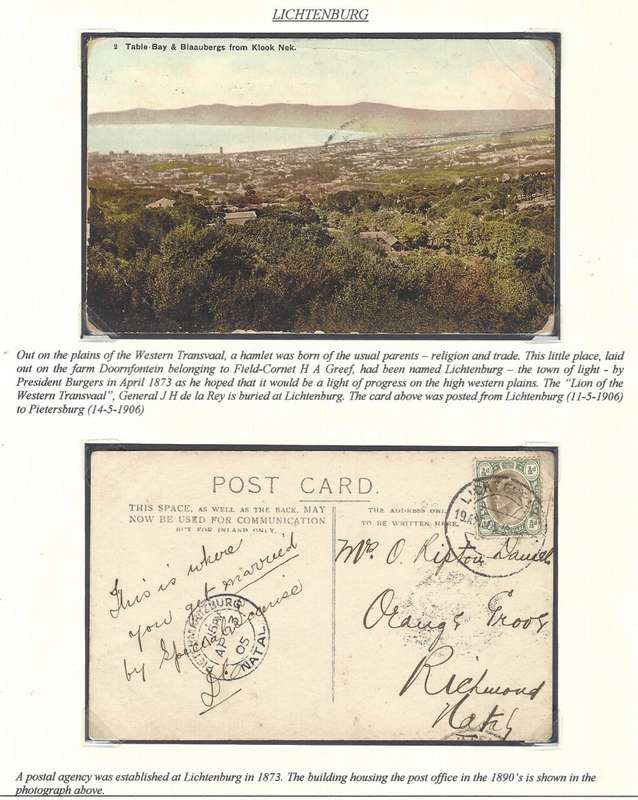 LICHTENBURG
2 Table Bay & Blaaubergs from Klook Nek.
Out on the plains of the Western Transvaal, a hamlet was born of the usual parents – religion and trade. This little place, laid
out on the farm Doornfontein belonging to Field-Cornet H A Greef, had been named Lichtenburg – the town of light - by
President Burgers in April 1873 as he hoped that it would be a light of progress on the high western plains. The “Lion of the
Western Transvaal”, General J H de la Rey is buried at Lichtenburg. The card above was posted from Lichtenburg (11-5-1906)
to Pietersburg (14-5-1906)
POST CARD.
THIS SPACE, AS WELL AS THE BACK, MAY
NOW BE USED FOR COMMUNICATION
BUT FOR INLAND ONLY.
THE ADDRESS ONLY
TO BE WRITTEN HERE.
This is where
you get married
by Special License
PIETERMARITZBURG
AP
05
NATAL
½d ½d
½d ½d
Mrs O. Ripton Daniel
Orange Grove
Richmond
Natal
A postal agency was established at Lichtenburg in 1873. The building housing the post office in the 1890’s is shown in the
photograph above.